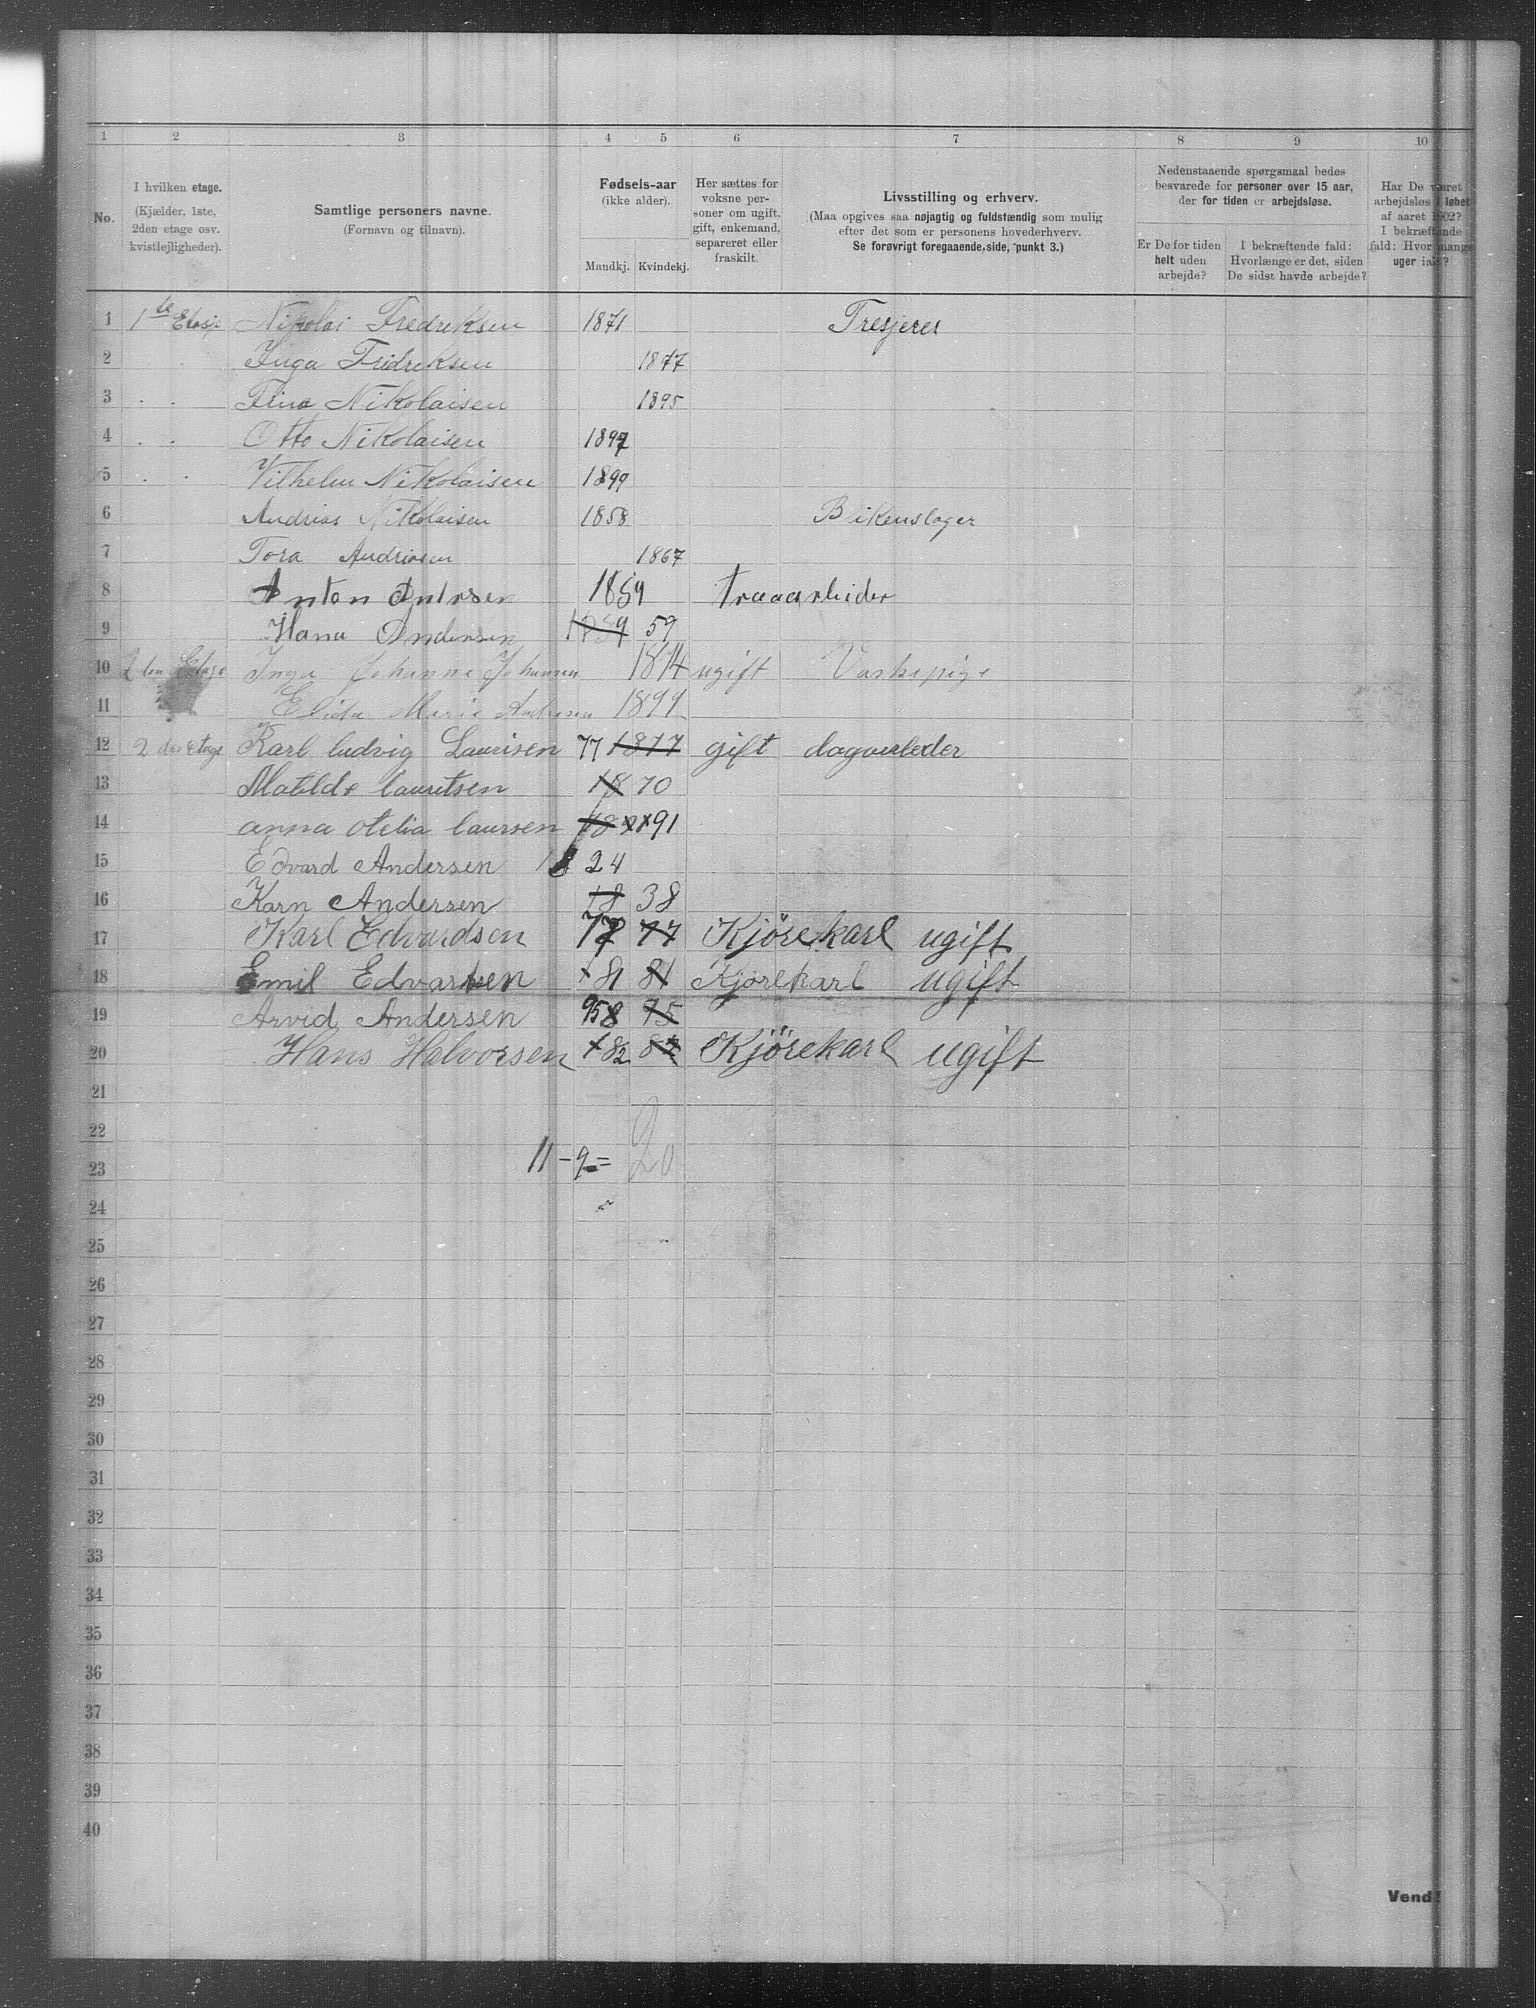 1 2 3 4 5 6 7 8 9 10
No.
I hvilken etage.
(Kjælder, 1ste,
2den etage osv.
kvistlejligheder).
Samtlige personers navne.
(Fornavn og tilnavn).
Fødsels-aar
(ikke alder).
Mandkj. Kvindekj.
Her sættes for
voksne per-
soner om ugift,
gift, enkemand,
separeret eller
fraskilt.
Livsstilling og erhverv.
(Maa opgives saa nøjagtig og fuldstændig som mulig
efter det som er personens hovederhverv.
Se forøvrigt foregaaende side, punkt 3.)
Nedenstaaende spørgsmaal bedes
besvarede for personer over 15 aar,
der for tiden er arbejdsløse.
Er De for tiden
helt uden
arbejde?
I bekræftende fald:
Hvorlænge er det, siden
De sidst havde arbejde?
Har De været
arbejdsløs i løbet
af aaret 1902?
I bekræftende
fald: Hvor mange
uger ialt?
1 1te Etasje Nikolai Fredriksen 1871 Tresjerer
2 Inga Fridreksen 1877
3 Fina Nikolaisen 1895
4 Otto Nikolaisen 1897
5 Vilhelm Nikolaisen 1899
6 Andrias Nikolaisen 1858 Blikenslager
7 Tora Andriasen 1867
8 Anton Andrsen 1859 traaarbeider
9 Hana Andersen 1859 59
10 2den Etage Inga Johanne Johansen 1874 ugift Vaskepige
11 Elida Marie Andresen 1899
12 2den etage Karl ludvig Laurisen 77 1877 gift dagarbeder
13 Matilde lauritsen 18 70
14 anna otelia laursen 18 91
15 Edvard Andersen 18 24
16 Karn Andersen 18 38
17 Karl Edvardsen 77 77 Kjörekarl ugift
18 Emil Edvartsen 81 81 Kjörekarl ugift
19 Arvid Andersen 95 95
20 Hans Halvorsen 82 82 Kjörekarl ugift
21
22
23 11 - 9 = 20
24
25
26
27
28
29
30
31
32
33
34
35
36
37
38
39
40
Vend!